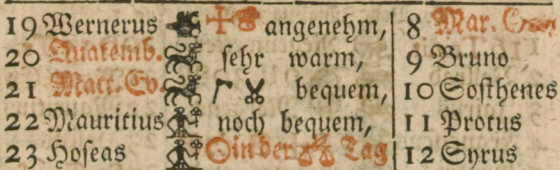 19 Wernerus angenehm, 8 Mar.
20 Quatemb. sehr warm, 9 Bruno
21 Matt. Ev. bequem, 10 Sosthenes
22 Mauritius noch bequem, 11 Protus
23 Hoseas in der Tag 12 Syrus